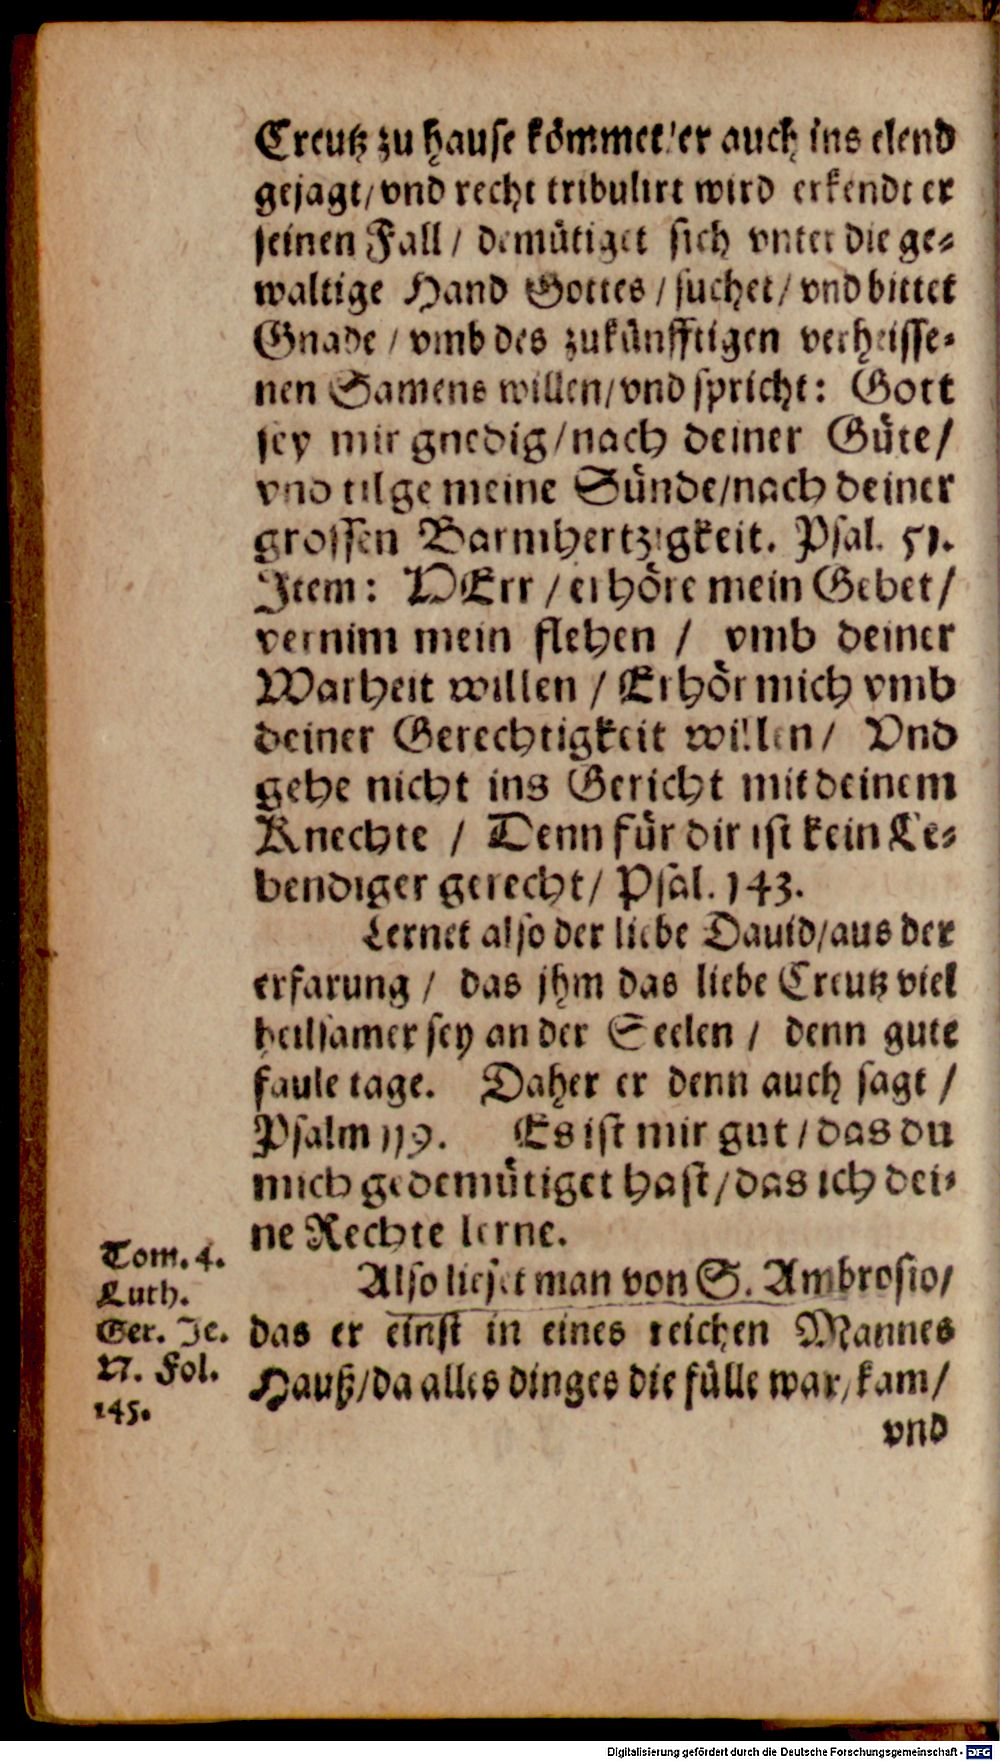 Creutz zu hause kömmet/er auch ins elend
gejagt/vnd recht tribulirt wird erkendt er
seinen Fall / demütiget sich vnter die ge-
waltige Hand Gottes / suchet/ vnd bittet
Gnade / vmb des zukünfftigen verheisse-
nen Samens willen/vnd spricht: Gott
sey mir gnedig/nach deiner Güte/
vnd tilge meine Sünde/nach deiner
grossen Barmhertzigkeit. Psal. 51.
Item: HErr / erhöre mein Gebet/
vernim mein flehen / vmb deiner
Warheit willen / Erhör mich vmb
deiner Gerechtigkeit willen/ Vnd
gehe nicht ins Gericht mit deinem
Knechte / Denn für dir ist kein Le-
bendiger gerecht/ Psal. 143.
Lernet also der liebe Dauid/aus der
erfarung / das jhm das liebe Creutz viel
heilsamer sey an der Seelen / denn gute
faule tage. Daher er denn auch sagt /
Psalm 119. Es ist mir gut/das du
mich gedemütiget hast/das ich dei-
ne Rechte lerne.
Tom. 4.
Luth.
Ger. Je.
N. Fol.
145.
Also lieset man von S. Ambrosio/
das er einst in eines reichen Mannes
Hauß/da alles dinges die fülle war/kam/
vnd
Digitalisierung gefördert durch die Deutsche Forschungsgemeinschaft - DFG